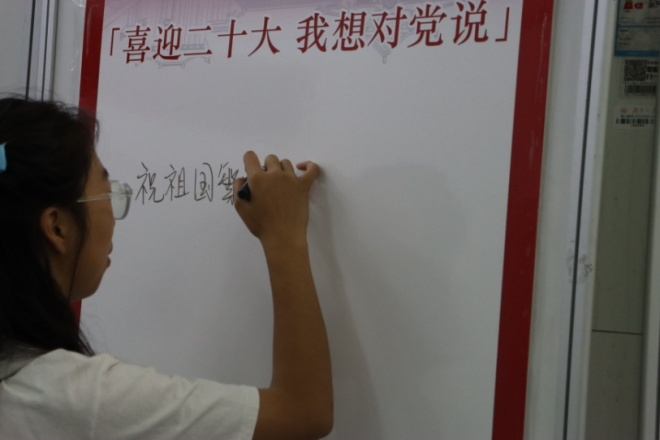 「喜迎二十大 我想对党说」
祝祖国繁